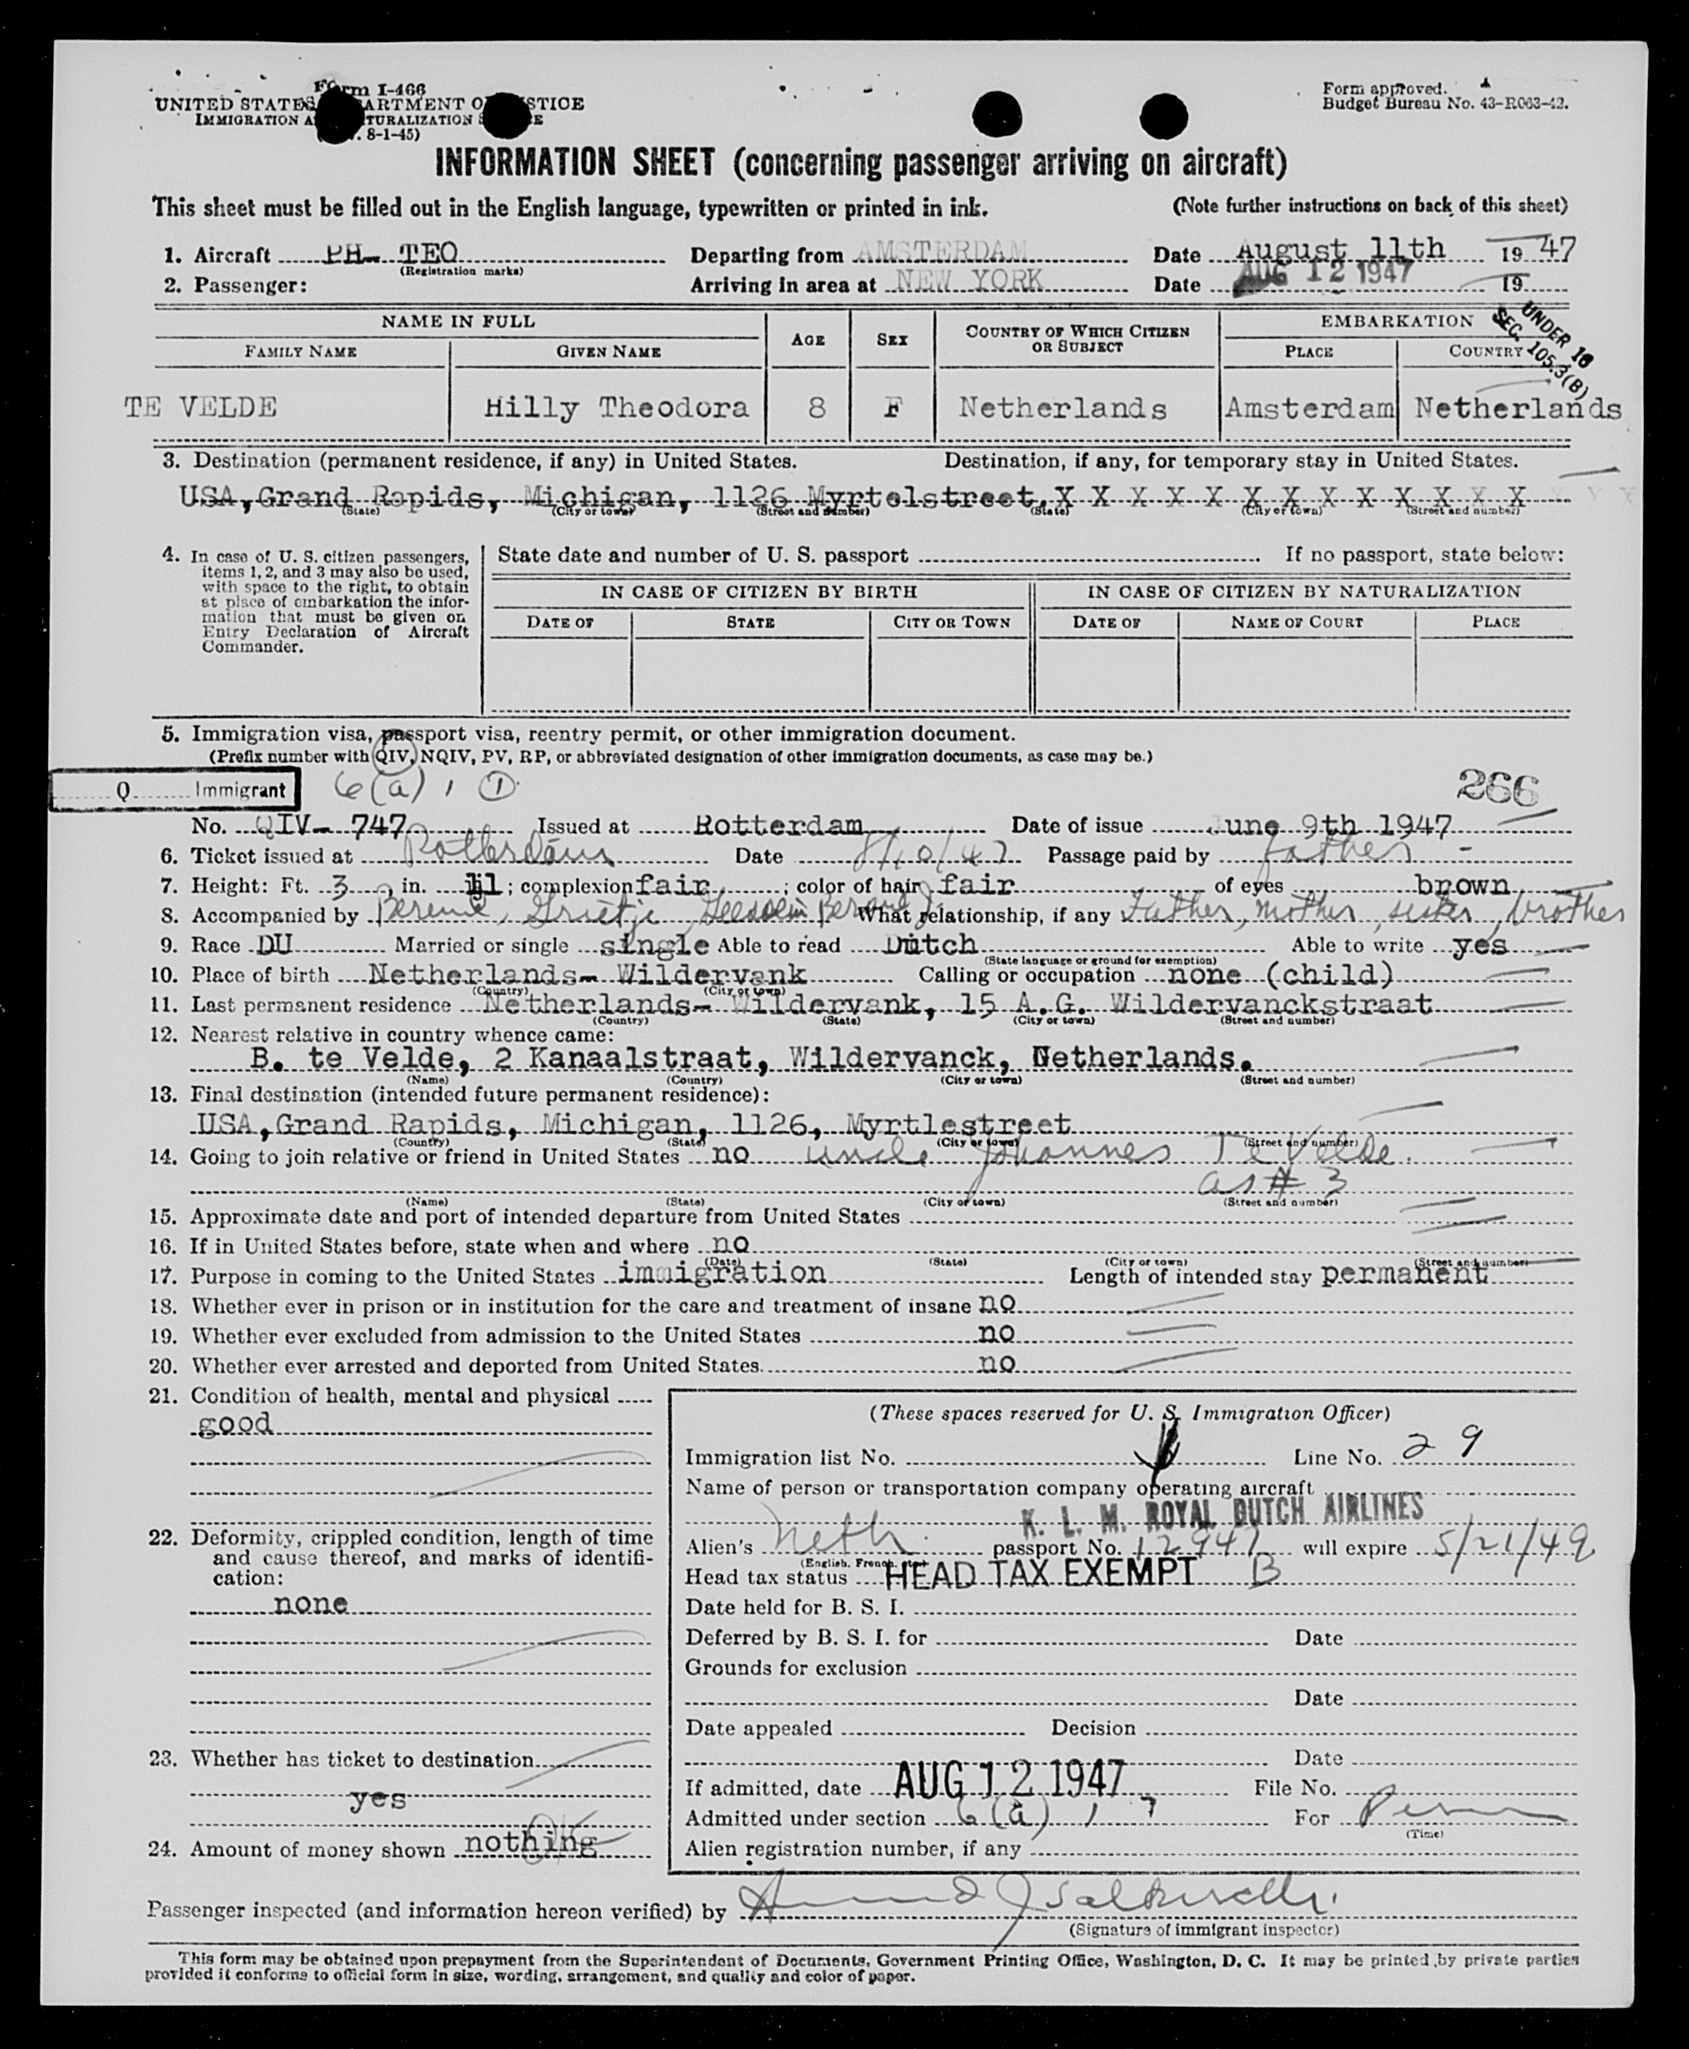 Form I-466
UNITED STATES DEPARTMENT OF JUSTICE
IMMIGRATION AND NATURALIZATION SERVICE
8-1-45)
Form approved.
Budget Bureau No. 43-R063-42.
INFORMATION SHEET (concerning passenger arriving on aircraft)
This sheet must be filled out in the English language, typewritten or printed in ink. (Note further instructions on back of this sheet)
1. Aircraft PH- TEO Departing from AMSTERDAM Date August 11th 1947
(Registration marks)
2. Passenger: Arriving in area at NEW YORK Date AUG 12 1947 19
UNDER 16
SEC. 105.3(B)
NAME IN FULL AGE SEX COUNTRY OF WHICH CITIZEN OR SUBJECT EMBARKATION
FAMILY NAME GIVEN NAME PLACE COUNTRY
TE VELDE Hilly Theodora 8 F Netherlands Amsterdam Netherlands
3. Destination (permanent residence, if any) in United States. Destination, if any, for temporary stay in United States.
USA, Grand Rapids, Michigan, 1126 Myrtelstreet, X X X X X X X X X X X X X X X
(State) (City or town) (Street and number) (State) (City or town) (Street and number)
4. In case of U. S. citizen passengers, items 1, 2, and 3 may also be used, with space to the right, to obtain at place of embarkation the information that must be given on Entry Declaration of Aircraft Commander.
State date and number of U. S. passport If no passport, state below:
IN CASE OF CITIZEN BY BIRTH IN CASE OF CITIZEN BY NATURALIZATION
DATE OF STATE CITY OR TOWN DATE OF NAME OF COURT PLACE
5. Immigration visa, passport visa, reentry permit, or other immigration document.
(Prefix number with QIV, NQIV, PV, RP, or abbreviated designation of other immigration documents, as case may be.)
Q Immigrant 6(a) 1 1 266
No. QIV- 747 Issued at Rotterdam Date of issue June 9th 1947
6. Ticket issued at Rotterdam Date 8/10/47 Passage paid by father -
7. Height: Ft. 3, in. 11; complexion fair; color of hair fair of eyes brown
8. Accompanied by Grietje What relationship, if any Father, mother, sister, brother
9. Race DU Married or single single Able to read Dutch Able to write yes
(State language or ground for exemption)
10. Place of birth Netherlands- Wildervank Calling or occupation none (child)
(Country) (City or town)
11. Last permanent residence Netherlands- Wildervank, 15 A.G. Wildervanckstraat
(Country) (State) (City or town) (Street and number)
12. Nearest relative in country whence came:
B. te Velde, 2 Kanaalstraat, Wildervanck, Netherlands.
(Name) (Country) (City or town) (Street and number)
13. Final destination (intended future permanent residence):
USA, Grand Rapids, Michigan, 1126, Myrtlestreet
(Country) (State) (City or town) (Street and number)
14. Going to join relative or friend in United States no uncle Johannes Te Velde.
as # 3
(Name) (State) (City or town) (Street and number)
15. Approximate date and port of intended departure from United States
16. If in United States before, state when and where no
(Date) (State) (City or town) (Street and number)
17. Purpose in coming to the United States immigration Length of intended stay permanent
18. Whether ever in prison or in institution for the care and treatment of insane no
19. Whether ever excluded from admission to the United States no
20. Whether ever arrested and deported from United States no
21. Condition of health, mental and physical
good
22. Deformity, crippled condition, length of time and cause thereof, and marks of identification:
none
23. Whether has ticket to destination
yes
24. Amount of money shown nothing OK
(These spaces reserved for U. S. Immigration Officer)
Immigration list No. Line No. 29
Name of person or transportation company operating aircraft
K. L. M. ROYAL DUTCH AIRLINES
Alien's Neth. passport No. 12947 will expire 5/21/49
(English, French, etc.)
Head tax status HEAD TAX EXEMPT B
Date held for B. S. I.
Deferred by B. S. I. for Date
Grounds for exclusion
Date
Date appealed Decision
Date
If admitted, date AUG 12 1947 File No.
Admitted under section 6(a) 1 For Perm
(Time)
Alien registration number, if any
Passenger inspected (and information hereon verified) by
(Signature of immigrant inspector)
This form may be obtained upon prepayment from the Superintendent of Documents, Government Printing Office, Washington, D. C. It may be printed by private parties
provided it conforms to official form in size, wording, arrangement, and quality and color of paper.